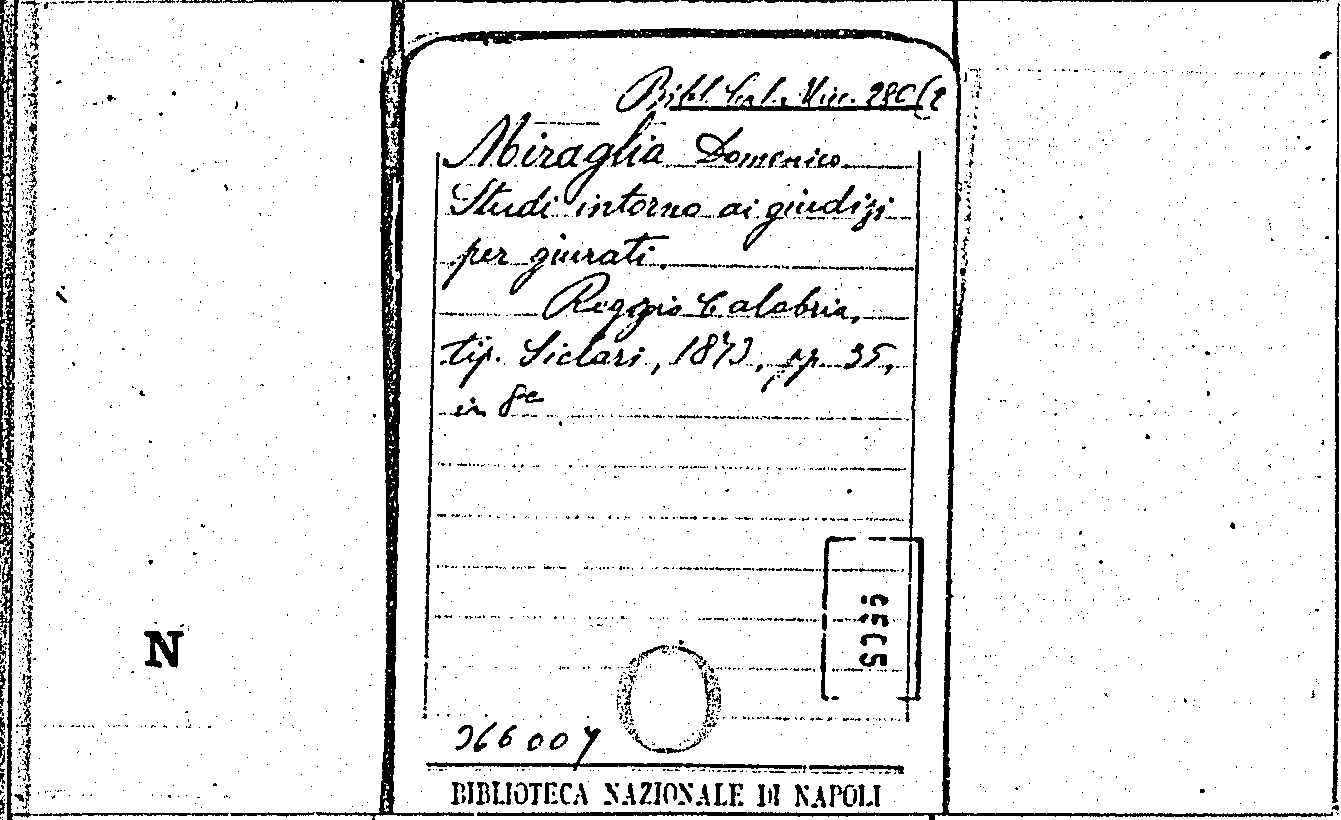 Bibl. Cal. Misc. 280(2
Miraglia Domenico
Studi intorno ai giudizi
per giurati.
Reggio Calabria,
tip. Siclari, 1873, pp. 35,
in 8°
N
366007
BIBLIOTECA NAZIONALE DI NAPOLI